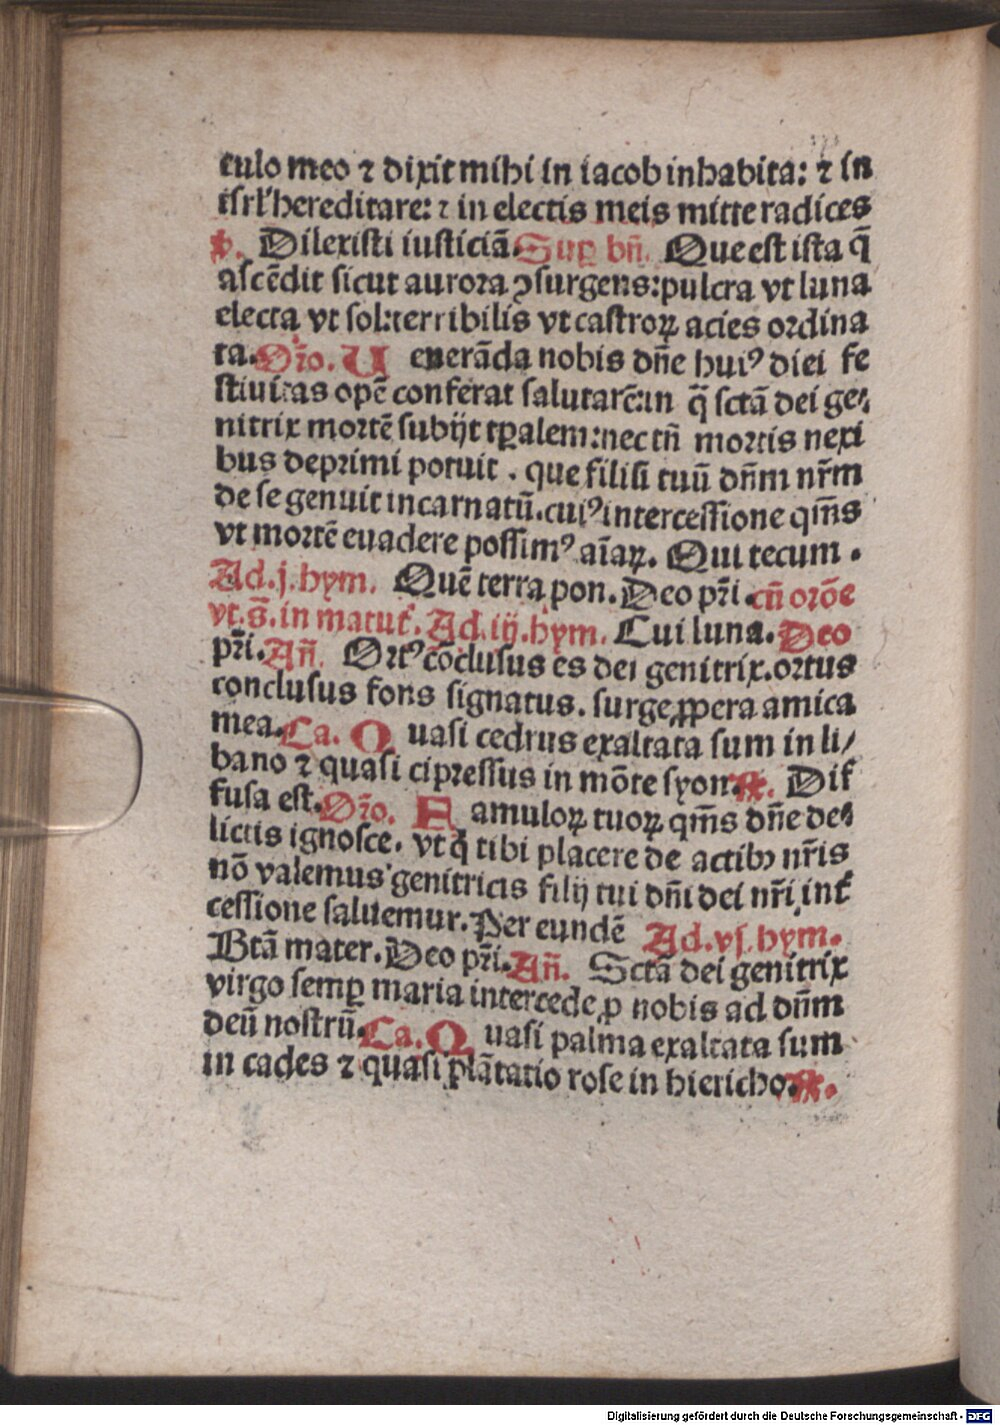 culo meo ⁊ dixit mihi in iacob inhabita: ⁊ in
isrl' hereditare: ⁊ in electis meis mitte radices
℣. Dilexisti iusticiā. Sup̄ bn̄. Que est ista q̄
ascēdit sicut aurora ꝯsurgens: pulcra vt luna
electa vt sol: terribilis vt castroꝝ acies ordina
ta. Or̄o. Uenerāda nobis dn̄e huiꝰ diei fe
stiuitas opē conferat salutarē: in q̄ sctā dei ge⸗
nitrix mortē subijt tꝑalem: nec tn̄ mortis nexi
bus deprimi potuit. que filiū tuū dn̄m nr̄m
de se genuit incarnatū. cuiꝰ intercessione qm̄s
vt mortē euadere possimꝰ aīaꝝ. Qui tecum.
Ad.j.hym. Quē terra pon. Deo pr̄i. cū orōe
vt.s̄. in matut̄. Ad.iij.hym. Cui luna. Deo
pr̄i. Añ. Ortꝰ cōclusus es dei genitrix. ortus
conclusus fons signatus. surge ꝓpera amica
mea. Ca. Quasi cedrus exaltata sum in li/
bano ⁊ quasi cipressus in mōte syon. ℟. Dif
fusa est. Or̄o. Famuloꝝ tuoꝝ qm̄s dn̄e de⸗
lictis ignosce. vt q̄ tibi placere de actibꝫ nr̄is
nō valemus genitricis filij tui dn̄i dei nr̄i int̄
cessione saluemur. Per eundē Ad.vj.hym.
Btā mater. Deo pr̄i. Añ. Sctā dei genitrix
virgo semꝑ maria intercede ꝓ nobis ad dn̄m
deū nostrū. Ca. Quasi palma exaltata sum
in cades ⁊ quasi plātatio rose in hiericho. ℟.
Digitalisierung gefördert durch die Deutsche Forschungsgemeinschaft - DFG